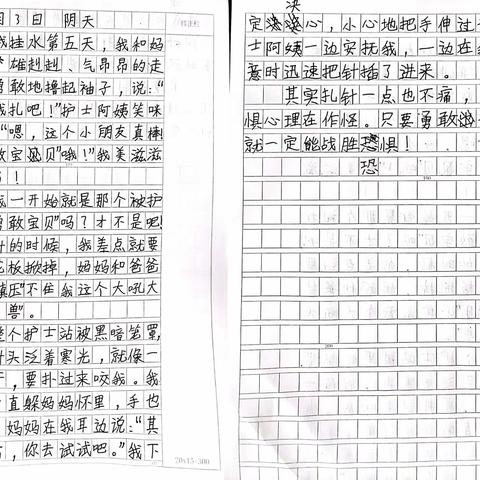 3日 阴天
我挂水第五天，我和妈
雄赳赳、气昂昂的走
勇敢地撸起袖子，说：“
我扎吧！”护士阿姨笑咪
“嗯，这个小朋友真棒
敢宝贝”哦！”我美滋滋
！
我一开始就是那个被护
勇敢宝贝”吗？才不是呢！
针的时候，我差点就要
花板掀掉，妈妈和爸爸
镇压”不住我这个大吼大
兽”。
整个护士站被黑暗笼罩，
针头泛着寒光，就像一
，要扑过来咬我。我
直躲妈妈怀里，手也
妈妈在我耳边说：“其
，你去试试吧。”我下
20x15=300
决
定心，小心地把手伸过
士阿姨一边安抚我，一边在
意时迅速把针插了进来。
其实扎针一点也不痛，
惧心理在作怪。只要勇敢
就一定能战胜恐惧！
恐